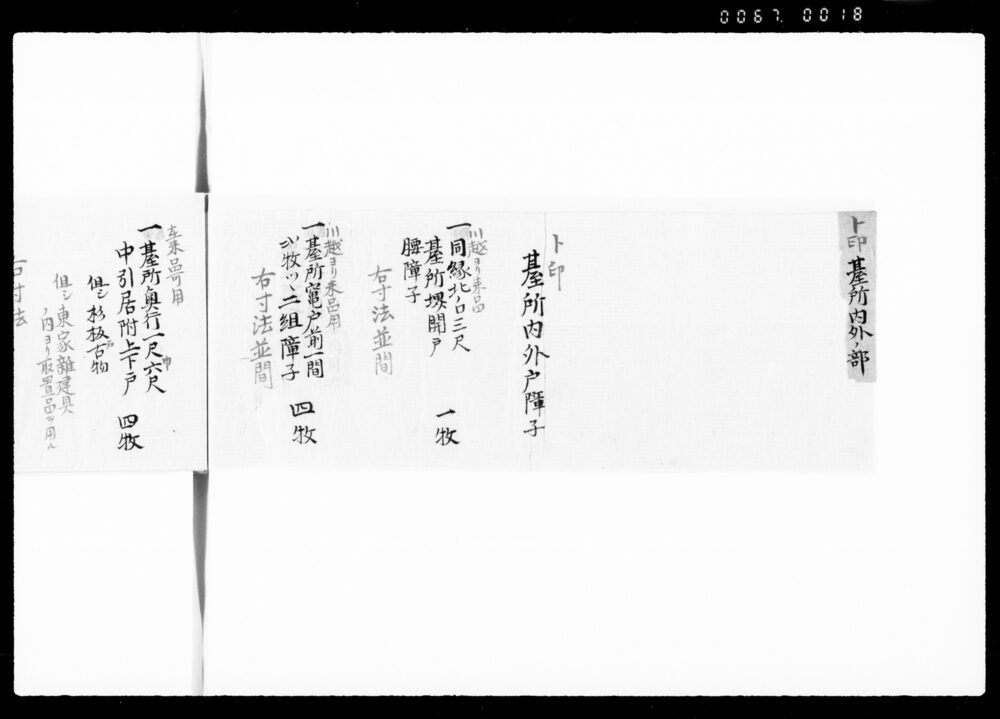 0067 0018
ト印
臺所内外ノ部
ト印
臺所内外戸障子
川越ヨリ来品
一同縁北ノ口三尺
臺所堺開戸
腰障子
一牧
右寸法並間
川越ヨリ来品用
一臺所竃戸前一間
弐牧ツヽ二組障子
四牧
右寸法並間
左来品可用
一臺所奥行一尺六尺
中引居附上下戸
四牧
但シ杉板戸古物
但シ東家雑建具
ノ内ヨリ取置品ヲ用ル
右寸法